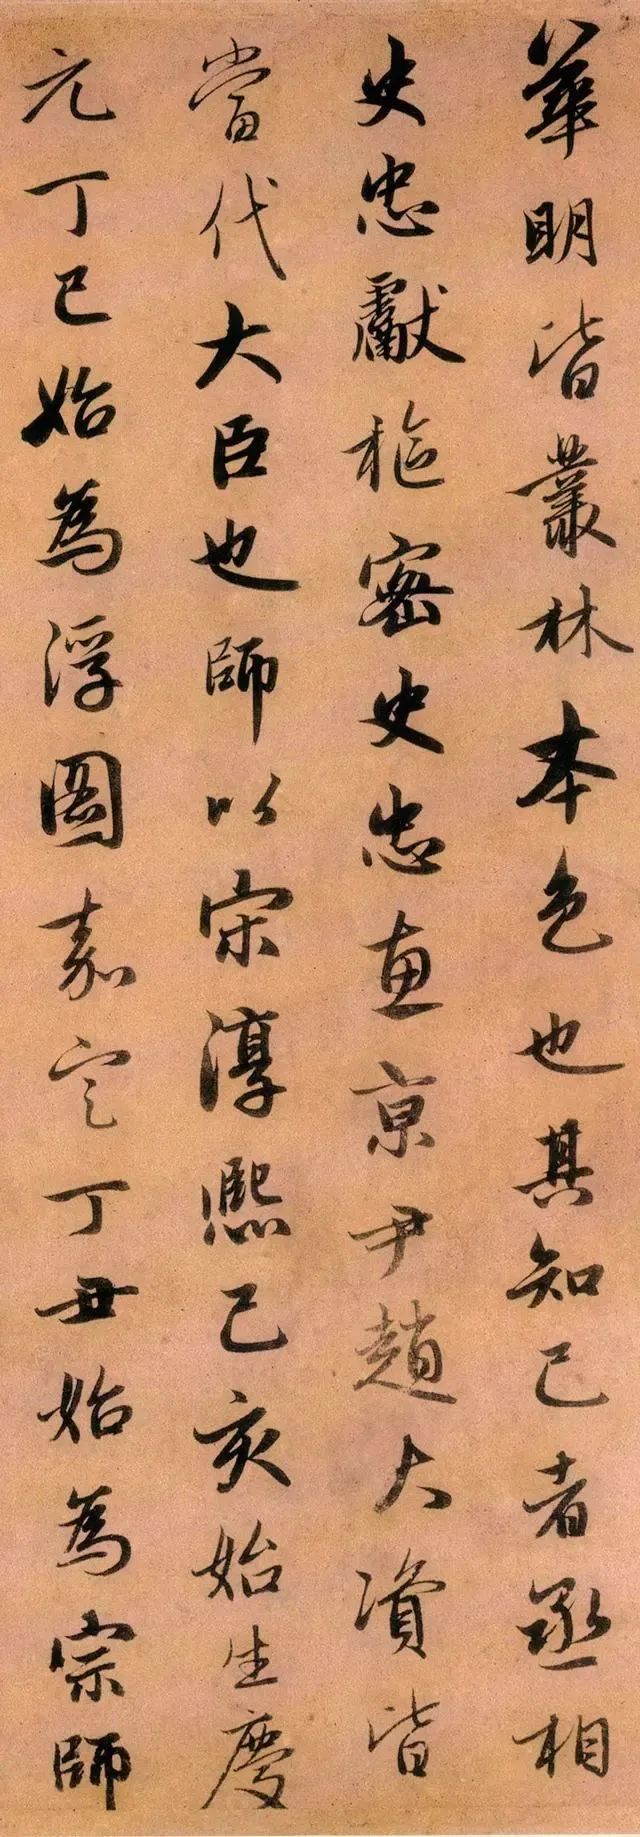 華明皆叢林本色也其知己者丞相
史忠獻樞密史忠惠京尹趙大資皆
當代大臣也師以宋淳熙己亥始生慶
元丁巳始為浮圖嘉定丁丑始為宗師